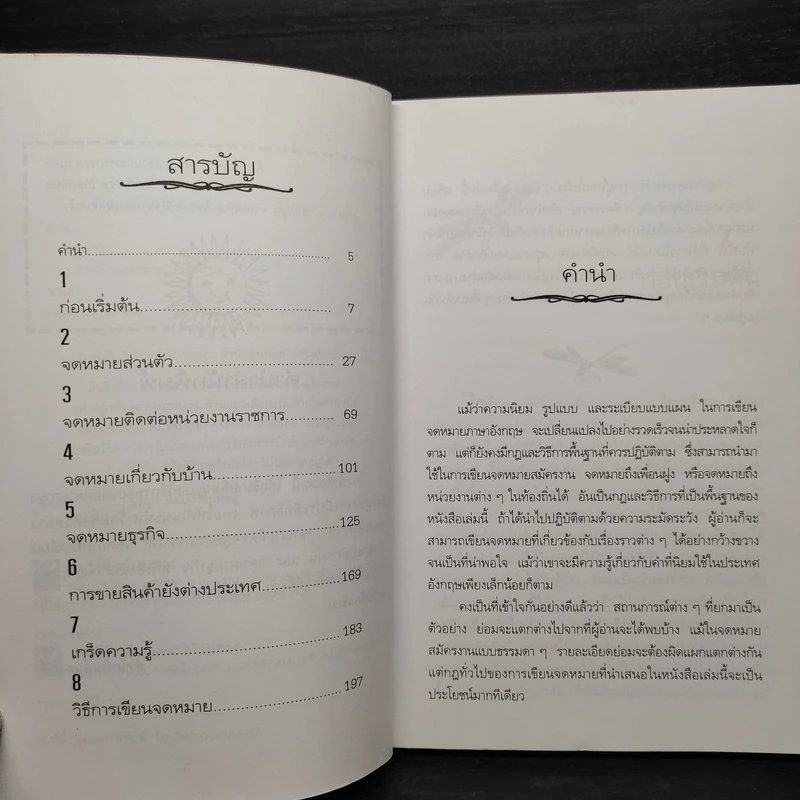 สารบัญ
คำนำ........................................................... 5
1
ก่อนเริ่มต้น................................................ 7
2
จดหมายส่วนตัว........................................ 27
3
จดหมายติดต่อหน่วยงานราชการ................ 69
4
จดหมายเกี่ยวกับบ้าน................................ 101
5
จดหมายธุรกิจ.......................................... 125
6
การขายสินค้ายังต่างประเทศ...................... 169
7
เกร็ดความรู้............................................. 183
8
วิธีการเขียนจดหมาย................................ 197
คำนำ
แม้ว่าความนิยม รูปแบบ และระเบียบแบบแผน ในการเขียน
จดหมายภาษาอังกฤษ จะเปลี่ยนแปลงไปอย่างรวดเร็วจนน่าประหลาดใจก็
ตาม แต่ก็ยังคงมีกฎและวิธีการพื้นฐานที่ควรปฏิบัติตาม ซึ่งสามารถนำมา
ใช้ในการเขียนจดหมายสมัครงาน จดหมายถึงเพื่อนฝูง หรือจดหมายถึง
หน่วยงานต่าง ๆ ในท้องถิ่นได้ อันเป็นกฎและวิธีการที่เป็นพื้นฐานของ
หนังสือเล่มนี้ ถ้าได้นำไปปฏิบัติตามด้วยความระมัดระวัง ผู้อ่านก็จะ
สามารถเขียนจดหมายที่เกี่ยวข้องกับเรื่องราวต่าง ๆ ได้อย่างกว้างขวาง
จนเป็นที่น่าพอใจ แม้ว่าเขาจะมีความรู้เกี่ยวกับคำที่นิยมใช้ในประเทศ
อังกฤษเพียงเล็กน้อยก็ตาม
คงเป็นที่เข้าใจกันอย่างดีแล้วว่า สถานการณ์ต่าง ๆ ที่ยกมาเป็น
ตัวอย่าง ย่อมจะแตกต่างไปจากที่ผู้อ่านจะได้พบบ้าง แม้ในจดหมาย
สมัครงานแบบธรรมดา ๆ รายละเอียดย่อมจะต้องผิดแผกแตกต่างกัน
แต่กฎทั่วไปของการเขียนจดหมายที่นำเสนอในหนังสือเล่มนี้จะเป็น
ประโยชน์มากทีเดียว